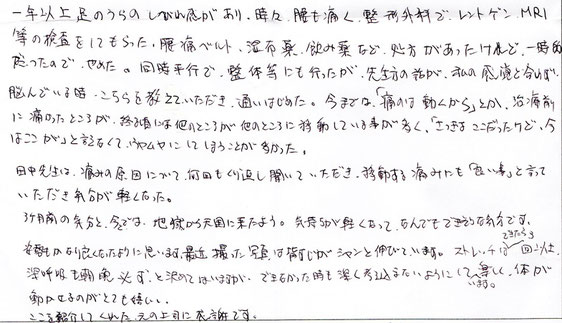 一年以上足のうらのしびれ感があり、時々、腰も痛く、整形外科で、レントゲン、MRI
等の検査をしてもらった。腰痛ベルト、湿布薬、飲み薬など、処方があったけれど、一時的
だったので、やめた。同時平行で、整体等にも行ったが、先生方の話が、私の感覚と合わず、
悩んでいる時、こちらを教えていただき、通いはじめた。今までは、「痛いのは動くから」とか、治療前
に痛かったところが、終る頃には他のところが他のところに移動している事が多く、「さっきはここだったけど、今
はここが」と言えなくて、うやむやにしてしまうことが多かった。
田中先生は、痛みの原因について、何回もくり返し聞いていただき、移動する痛みにも「良い事」と言って
いただき気分が軽くなった。
3ヶ月前の気分と、今では、地獄から天国に来たよう。気持ちが軽くなって、なんでもできそうな気分です。
姿勢もかなり良くなったように思います。最近撮った写真は背すじがシャンと伸びています。ストレッチは できたら3回以上、
深呼吸も朝晩必ず、と決めてはいますが、できなかった時も深く考え込まないようにしています。楽しく、体が
動かせるのがとても嬉しい。
ここを紹介してくれた元の上司に感謝です。